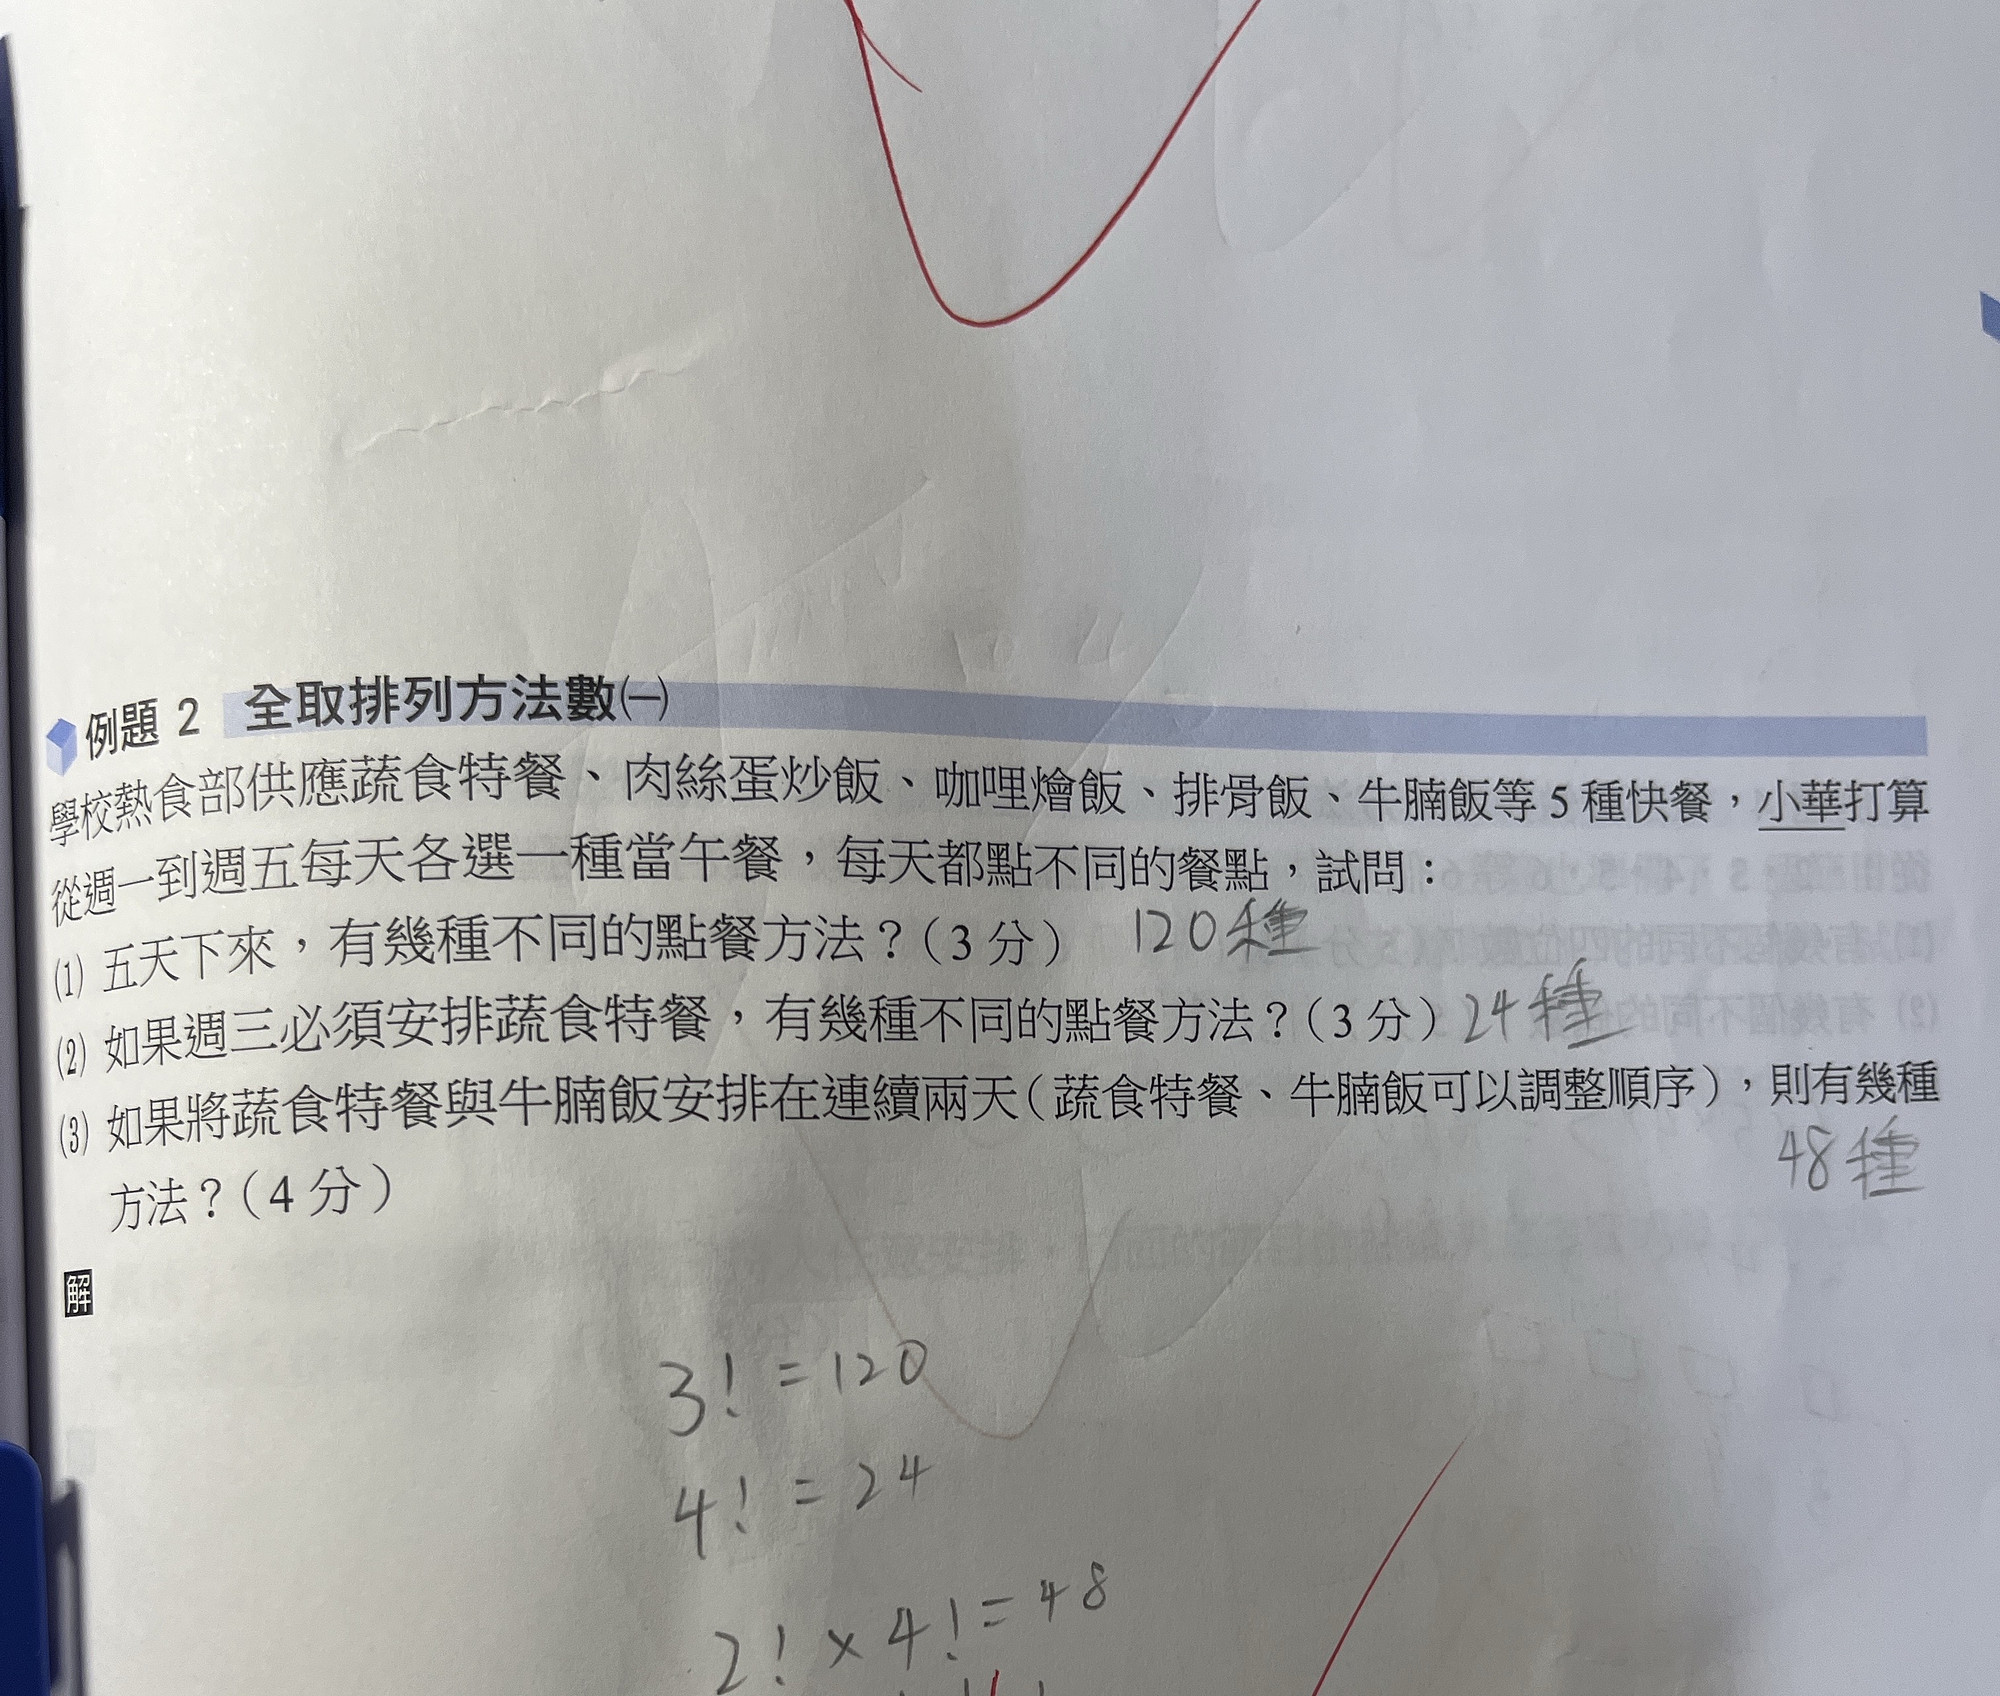 例題 2 全取排列方法數㈠
學校熱食部供應蔬食特餐、肉絲蛋炒飯、咖哩燴飯、排骨飯、牛腩飯等 5 種快餐，小華打算
從週一到週五每天各選一種當午餐，每天都點不同的餐點，試問：
⑴ 五天下來，有幾種不同的點餐方法？（3 分） 120種
⑵ 如果週三必須安排蔬食特餐，有幾種不同的點餐方法？（3 分）24種
⑶ 如果將蔬食特餐與牛腩飯安排在連續兩天（蔬食特餐、牛腩飯可以調整順序），則有幾種
方法？（4 分） 48種
解
3! = 120
4! = 24
2! × 4! = 48